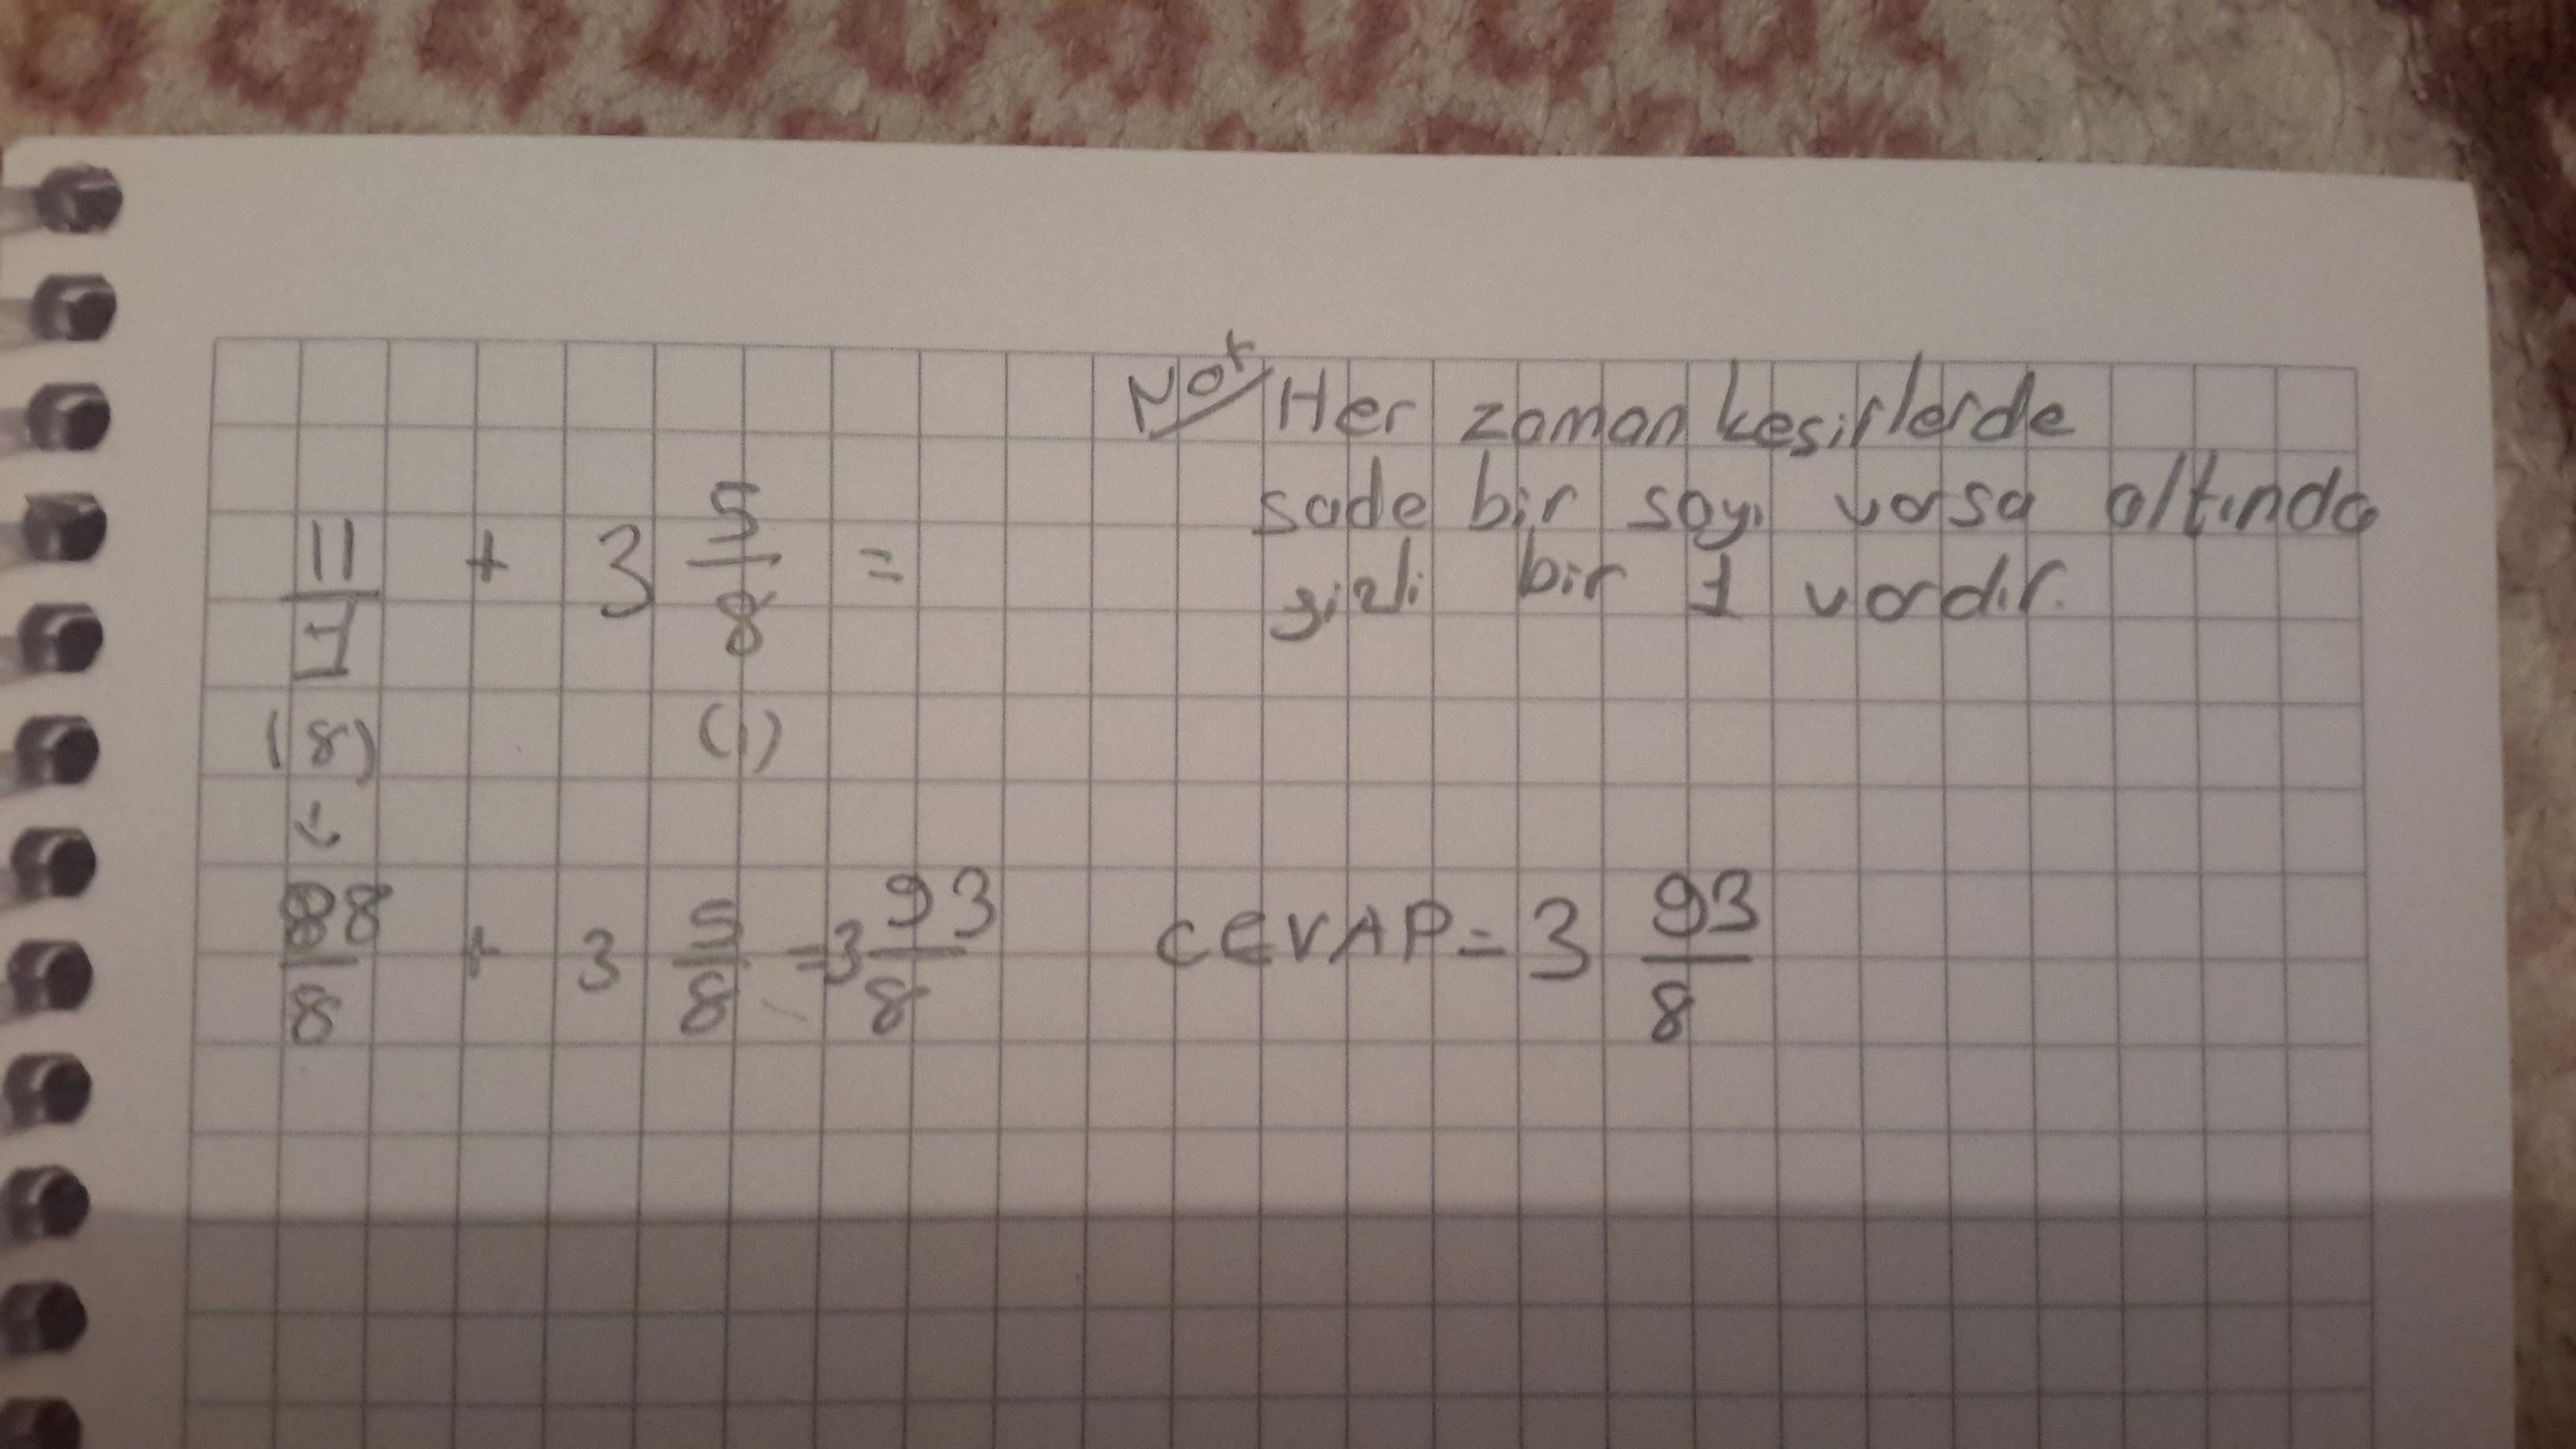 Not/ Her zaman kesirlerde
sade bir sayı varsa altında
gizli bir 1 vardır.
11/1 + 3 5/8 =
(8) (1)
88/8 + 3 5/8 = 3 93/8
CEVAP = 3 93/8